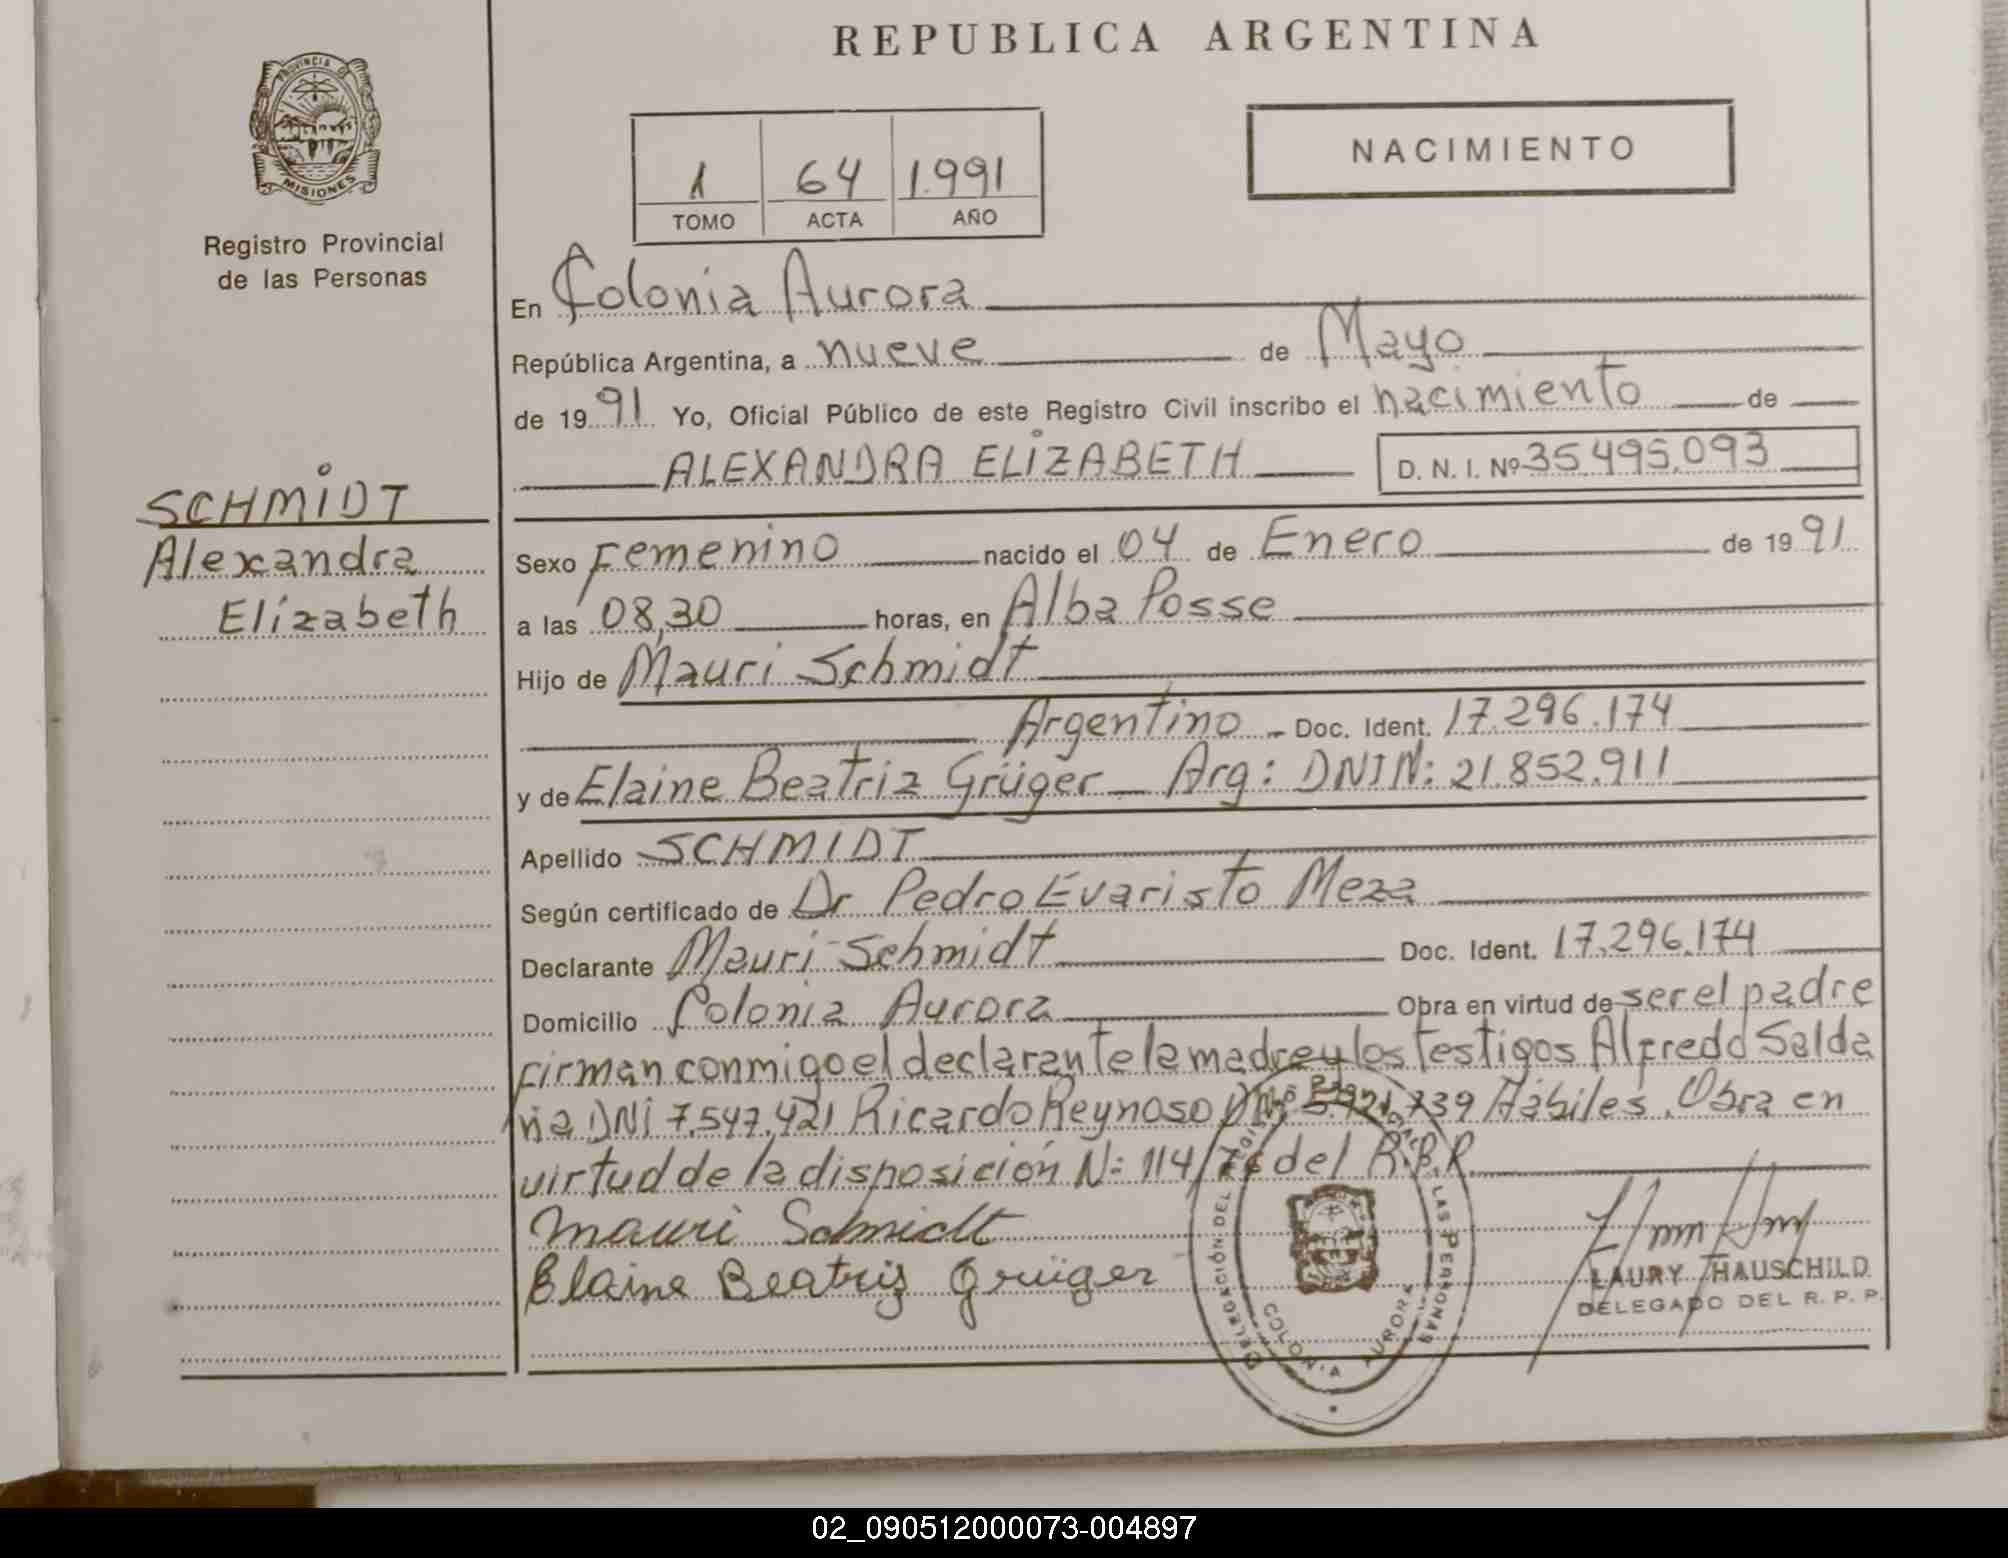 REPUBLICA ARGENTINA
PROVINCIA DE
MISIONES
Registro Provincial
de las Personas
NACIMIENTO
1 64 1.991
TOMO ACTA AÑO
En Colonia Aurora
República Argentina, a nueve de Mayo
de 19 91 Yo, Oficial Público de este Registro Civil inscribo el nacimiento de
ALEXANDRA ELIZABETH D. N. I. Nº 35.495.093
SCHMIDT
Alexandra
Elizabeth
Sexo Femenino nacido el 04 de Enero de 19 91
a las 08,30 horas, en Alba Posse
Hijo de Mauri Schmidt
Argentino Doc. Ident. 17.296.174
y de Elaine Beatriz Grüger Arg: DNI N: 21.852.911
Apellido SCHMIDT
Según certificado de Dr Pedro Evaristo Meza
Declarante Mauri Schmidt Doc. Ident. 17.296.174
Domicilio Colonia Aurora Obra en virtud de ser el padre
firman conmigo el declarante la madre y los testigos Alfredo Salda
ña DNI 7.547.421 Ricardo Reynoso 739 Hábiles. Obra en
virtud de la disposición N: 114/76 del R.P.P.
Mauri Schmidt
Elaine Beatriz Grüger
DELEGACIÓN DEL LAS PERSONAS
COLONIA AURORA
LAURY HAUSCHILD
DELEGADO DEL R. P. P.
02_090512000073-004897